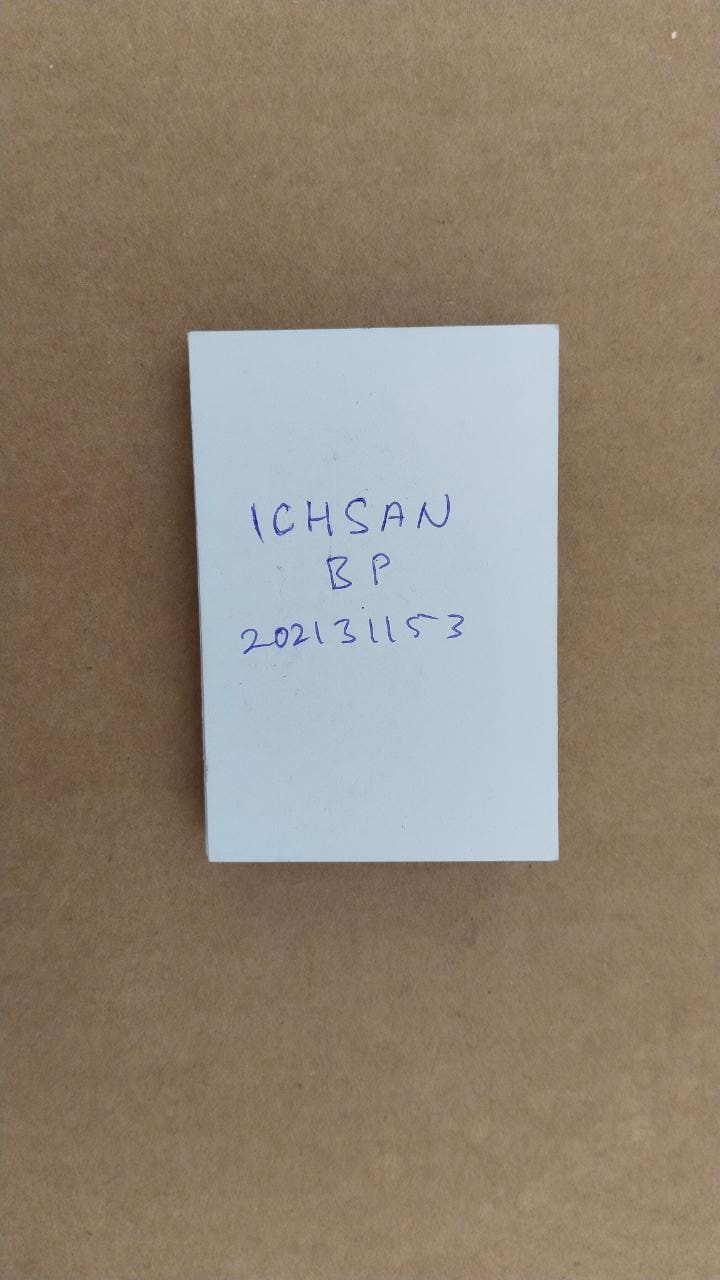 ICHSAN
BP
202131153